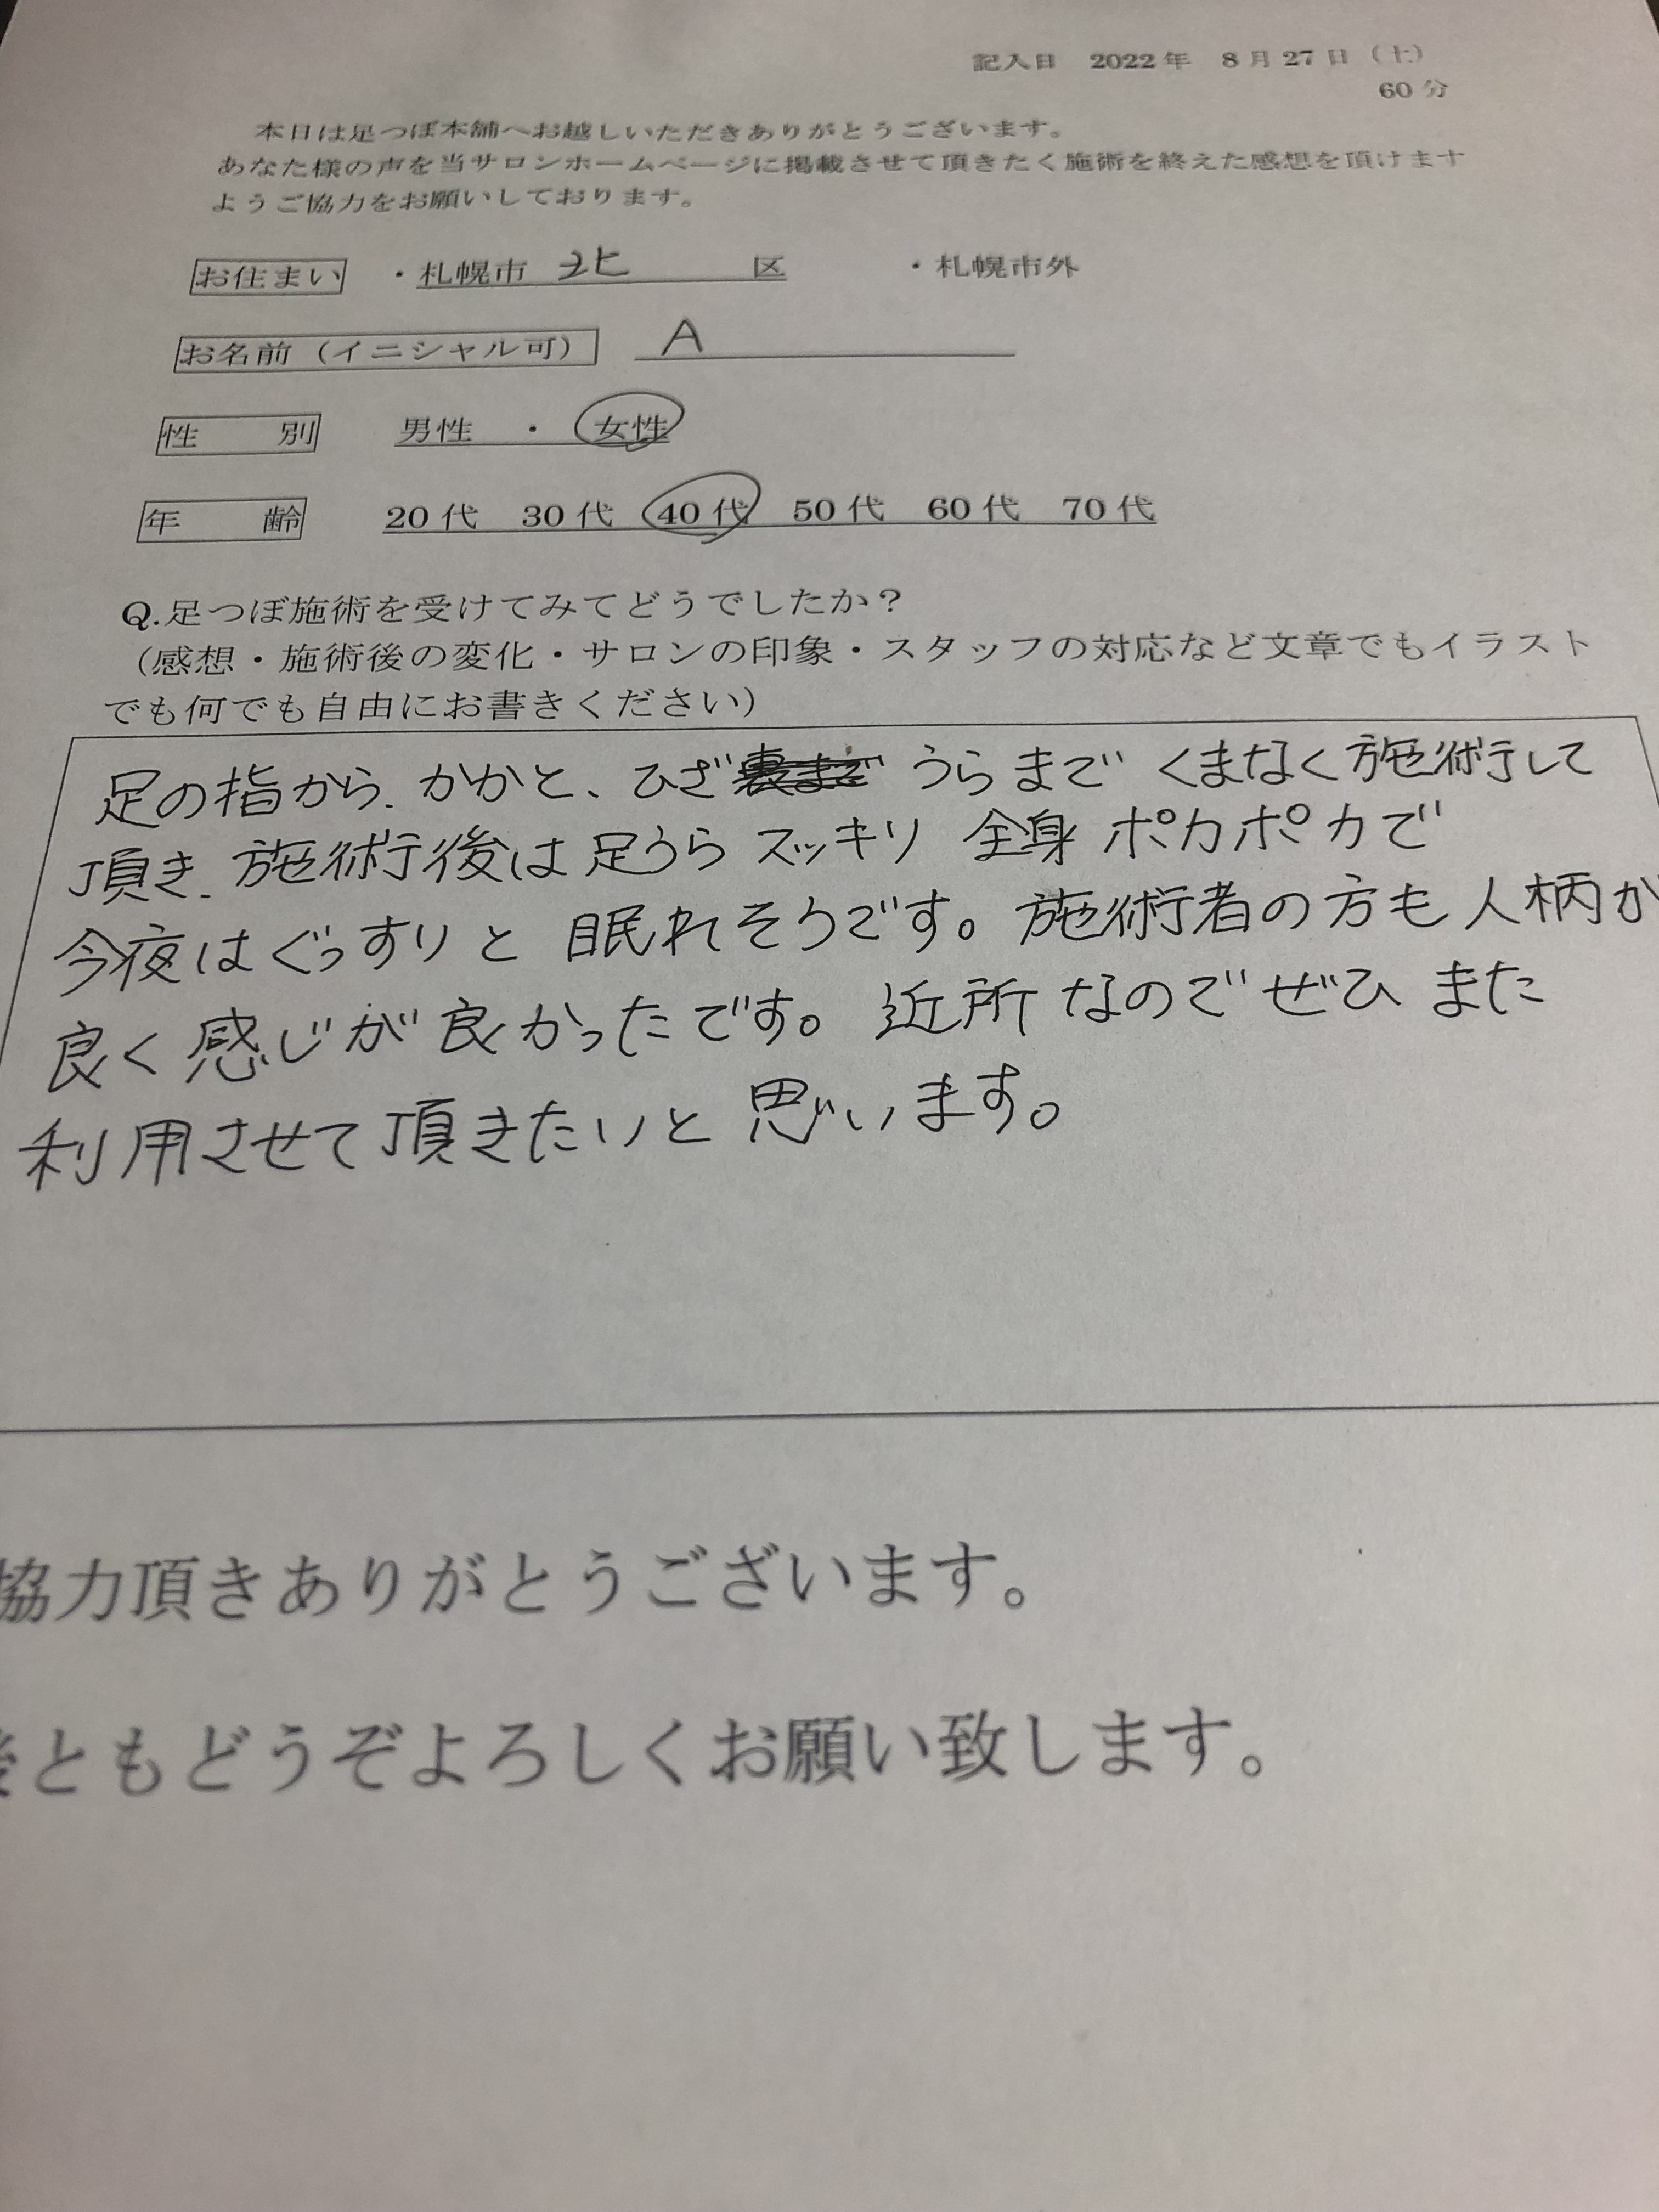 記入日 2022年 8月27日（土）
60分
本日は足つぼ本舗へお越しいただきありがとうございます。
あなた様の声を当サロンホームページに掲載させて頂きたく施術を終えた感想を頂けます
ようご協力をお願いしております。
お住まい ・札幌市 北 区 ・札幌市外
お名前（イニシャル可） A
性 別 男性 ・ 女性
年 齢 20代 30代 40代 50代 60代 70代
Q.足つぼ施術を受けてみてどうでしたか？
（感想・施術後の変化・サロンの印象・スタッフの対応など文章でもイラスト
でも何でも自由にお書きください）
足の指から、かかと、ひざうらまで くまなく施術して
頂き、施術後は足うら スッキリ 全身 ポカポカで
今夜はぐっすりと 眠れそうです。施術者の方も人柄が
良く感じが良かったです。近所なのでぜひ また
利用させて頂きたいと思います。
協力頂きありがとうございます。
後ともどうぞよろしくお願い致します。